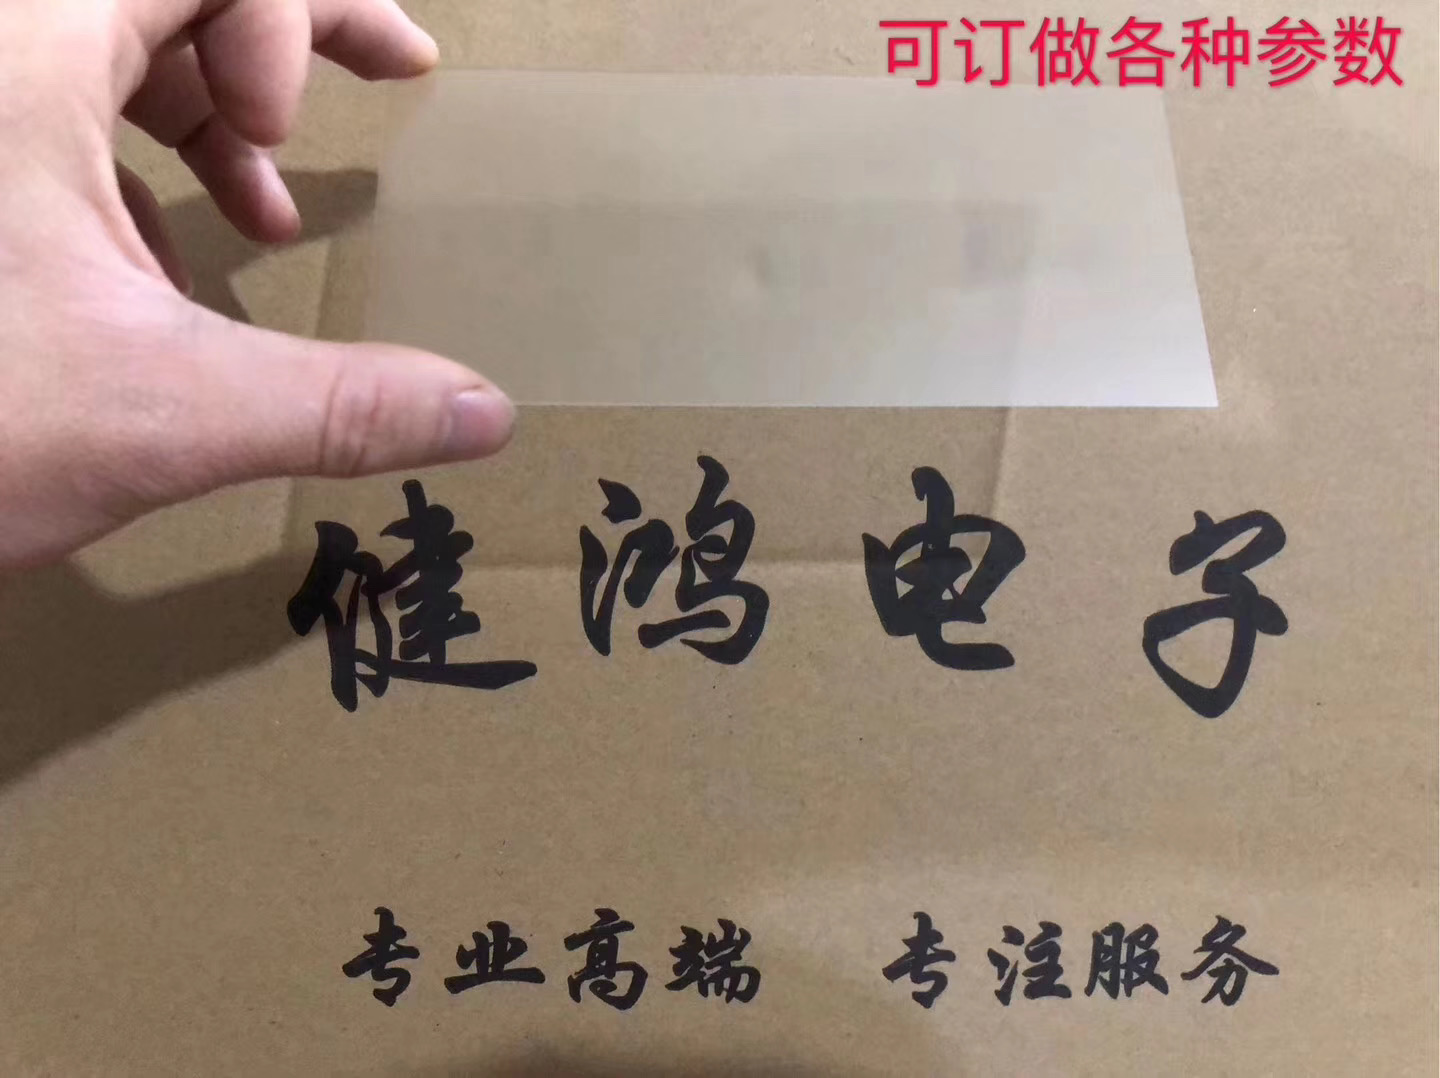 可订做各种参数
健鸿电子
专业高端 专注服务